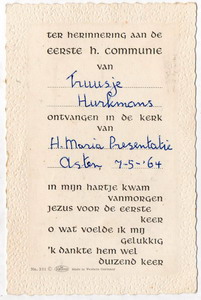 ter herinnering aan de
eerste h. communie
van
Truusje
Hurkmans
ontvangen in de kerk
van
H. Maria Presentatie
Asten 7-5-'64
in mijn hartje kwam
vanmorgen
jezus voor de eerste
keer
o wat voelde ik mij
gelukkig
'k dankte hem wel
duizend keer